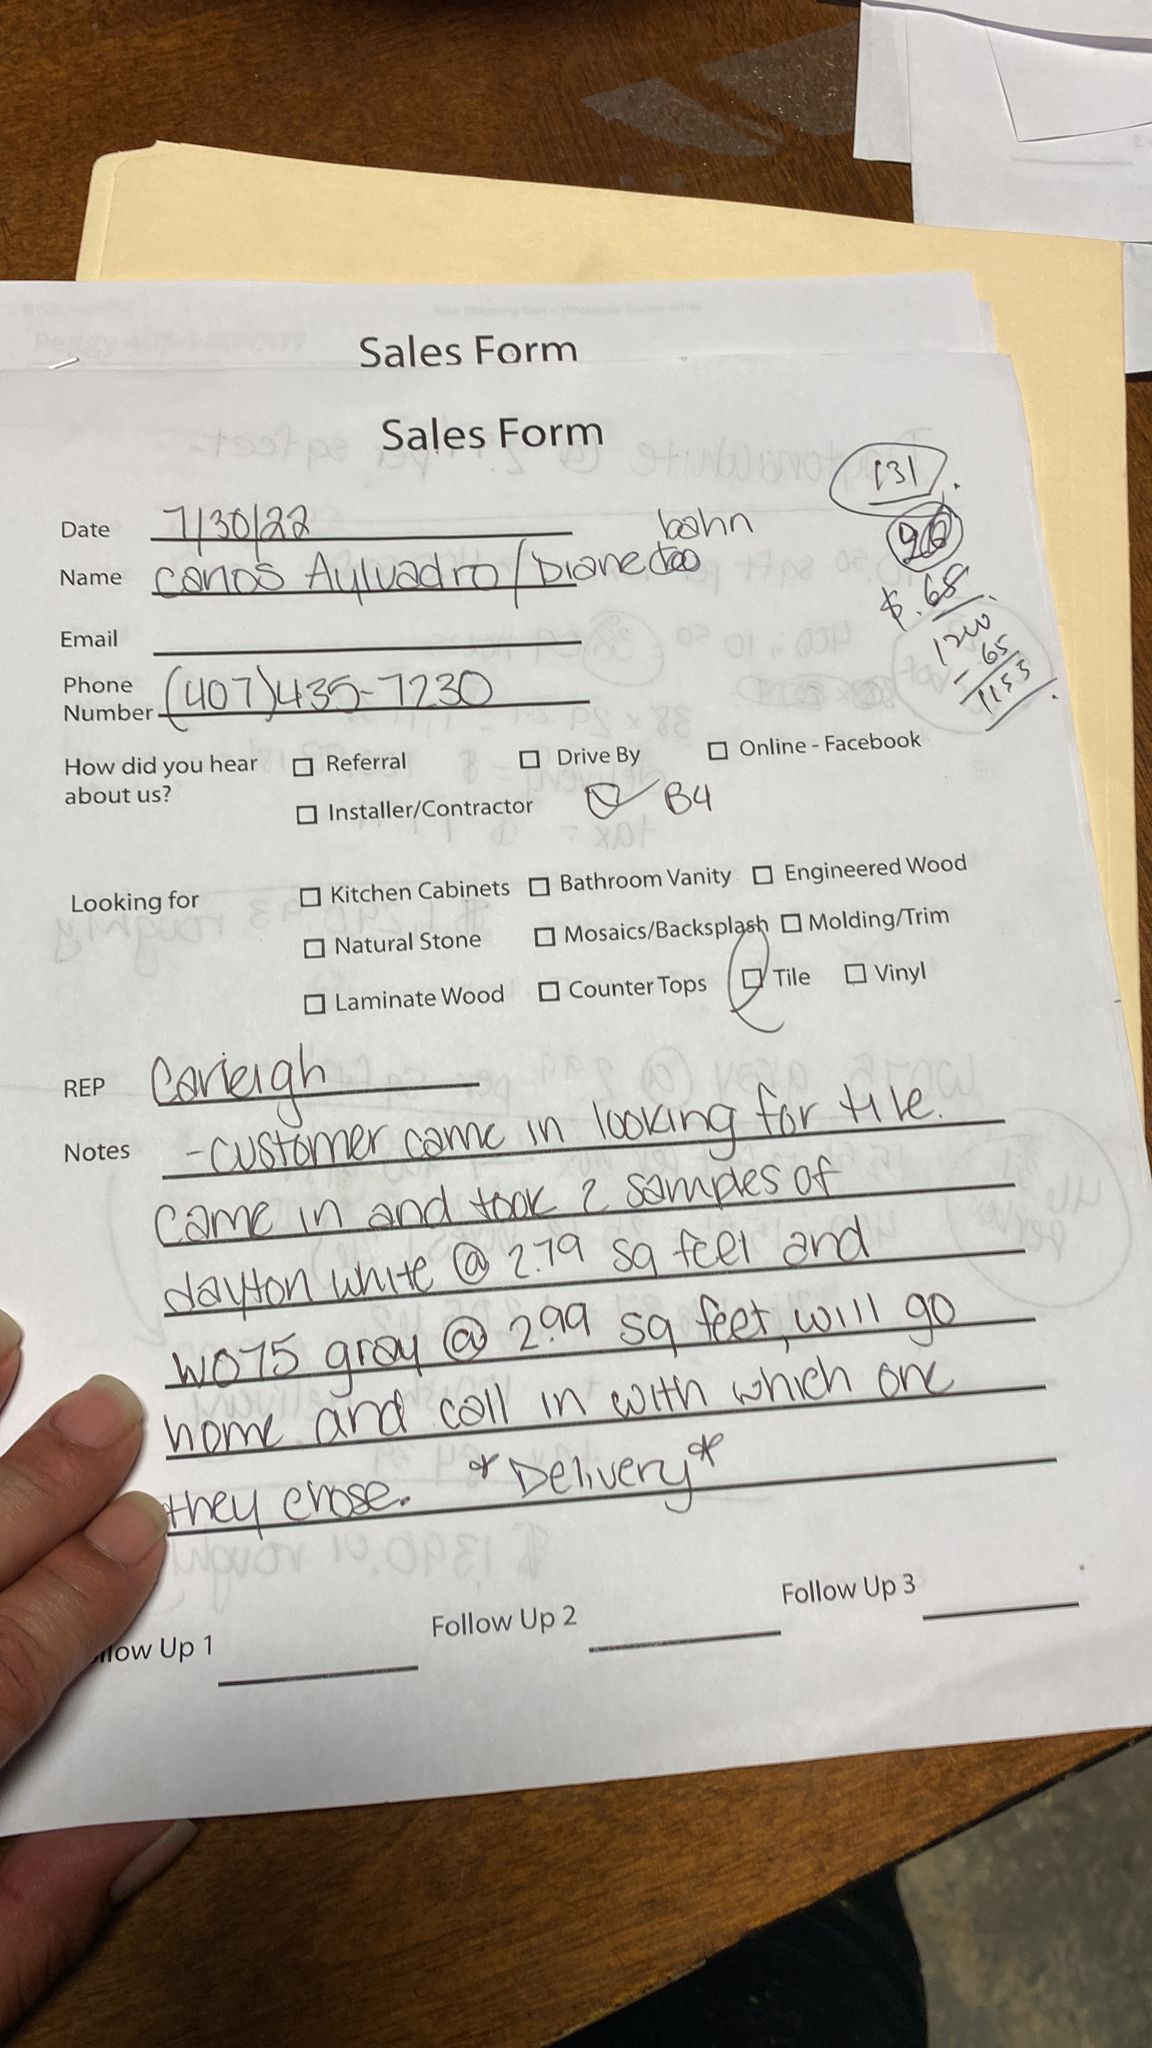 Sales Form
Sales Form
131
96
$.68
1200
- 65
1153
Date 7/30/22
bahn
Name Aylvadro/Diane
Email
Phone Number (407)435-7230
How did you hear about us?
Referral Drive By Online - Facebook
Installer/Contractor B4
Looking for
Kitchen Cabinets Bathroom Vanity Engineered Wood
Natural Stone Mosaics/Backsplash Molding/Trim
Laminate Wood Counter Tops Tile Vinyl
REP Carleigh
Notes -customer came in looking for tile.
came in and took 2 samples of
dayton white @ 2.79 sq feet and
W075 gray @ 2.99 sq feet, will go
home and call in with which one
they chose. *Delivery*
llow Up 1 Follow Up 2 Follow Up 3